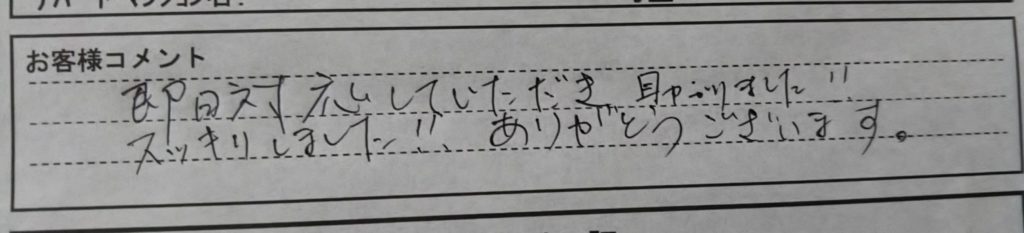 アパート・マンション名:
お客様コメント
即日対応していただき 助かりました!!
スッキリしました!! ありがとうございます。